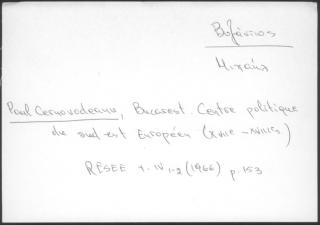 Βυζάντιος
Μιχαήλ
Paul Cernovodeanu, Bucarest. Centre politique
du sud-est Européen (XVIIe - XVIIIes)
RESEE t. IV 1-2 (1966) p. 153